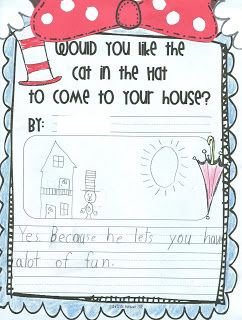 Would you like the
Cat in the Hat
to come to your house?
By:
Yes. Because he lets you have
alot of fun.